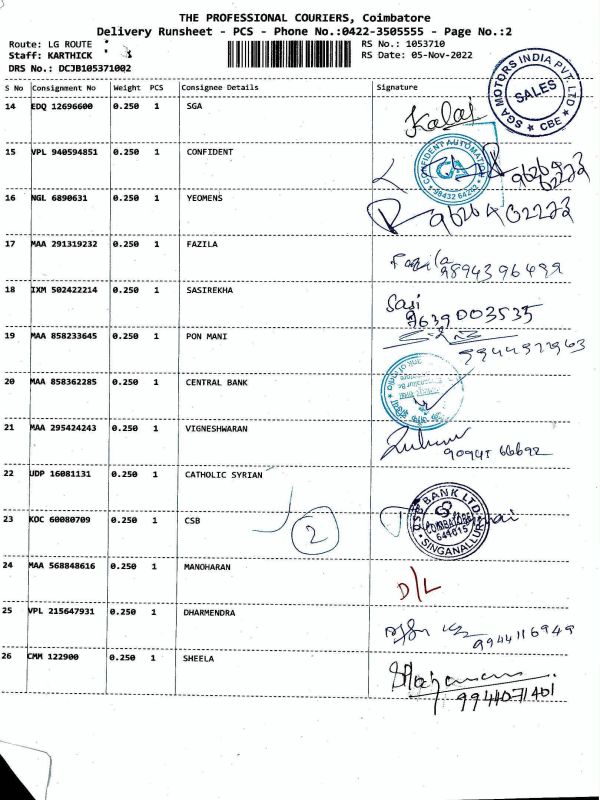 THE PROFESSIONAL COURIERS, Coimbatore
Delivery Runsheet - PCS - Phone No.:0422-3505555 - Page No.:2
Route: LG ROUTE
Staff: KARTHICK
DRS No.: DCJB105371002
RS No.: 1053710
RS Date: 05-Nov-2022
S No Consignment No Weight PCS Consignee Details Signature
SGA MOTORS INDIA PVT. LTD
SALES
CBE
14 EDQ 12696600 0.250 1 SGA
15 VPL 940594851 0.250 1 CONFIDENT
CONFIDENT AUTOMATION
CA
98432 64252
16 NGL 6890631 0.250 1 YEOMENS
17 MAA 291319232 0.250 1 FAZILA
Fazila
9894396499
18 IXM 502422214 0.250 1 SASIREKHA
Sasi
9639003535
19 MAA 858233645 0.250 1 PON MANI
9944972963
20 MAA 858362285 0.250 1 CENTRAL BANK
21 MAA 295424243 0.250 1 VIGNESHWARAN
22 UDP 16081131 0.250 1 CATHOLIC SYRIAN
23 KOC 60080709 0.250 1 CSB
2
BANK LTD.
COIMBATORE
641015
SINGANALLUR
24 MAA 568848616 0.250 1 MANOHARAN
D/L
25 VPL 215647931 0.250 1 DHARMENDRA
9944116949
26 CMM 122900 0.250 1 SHEELA
9944071401